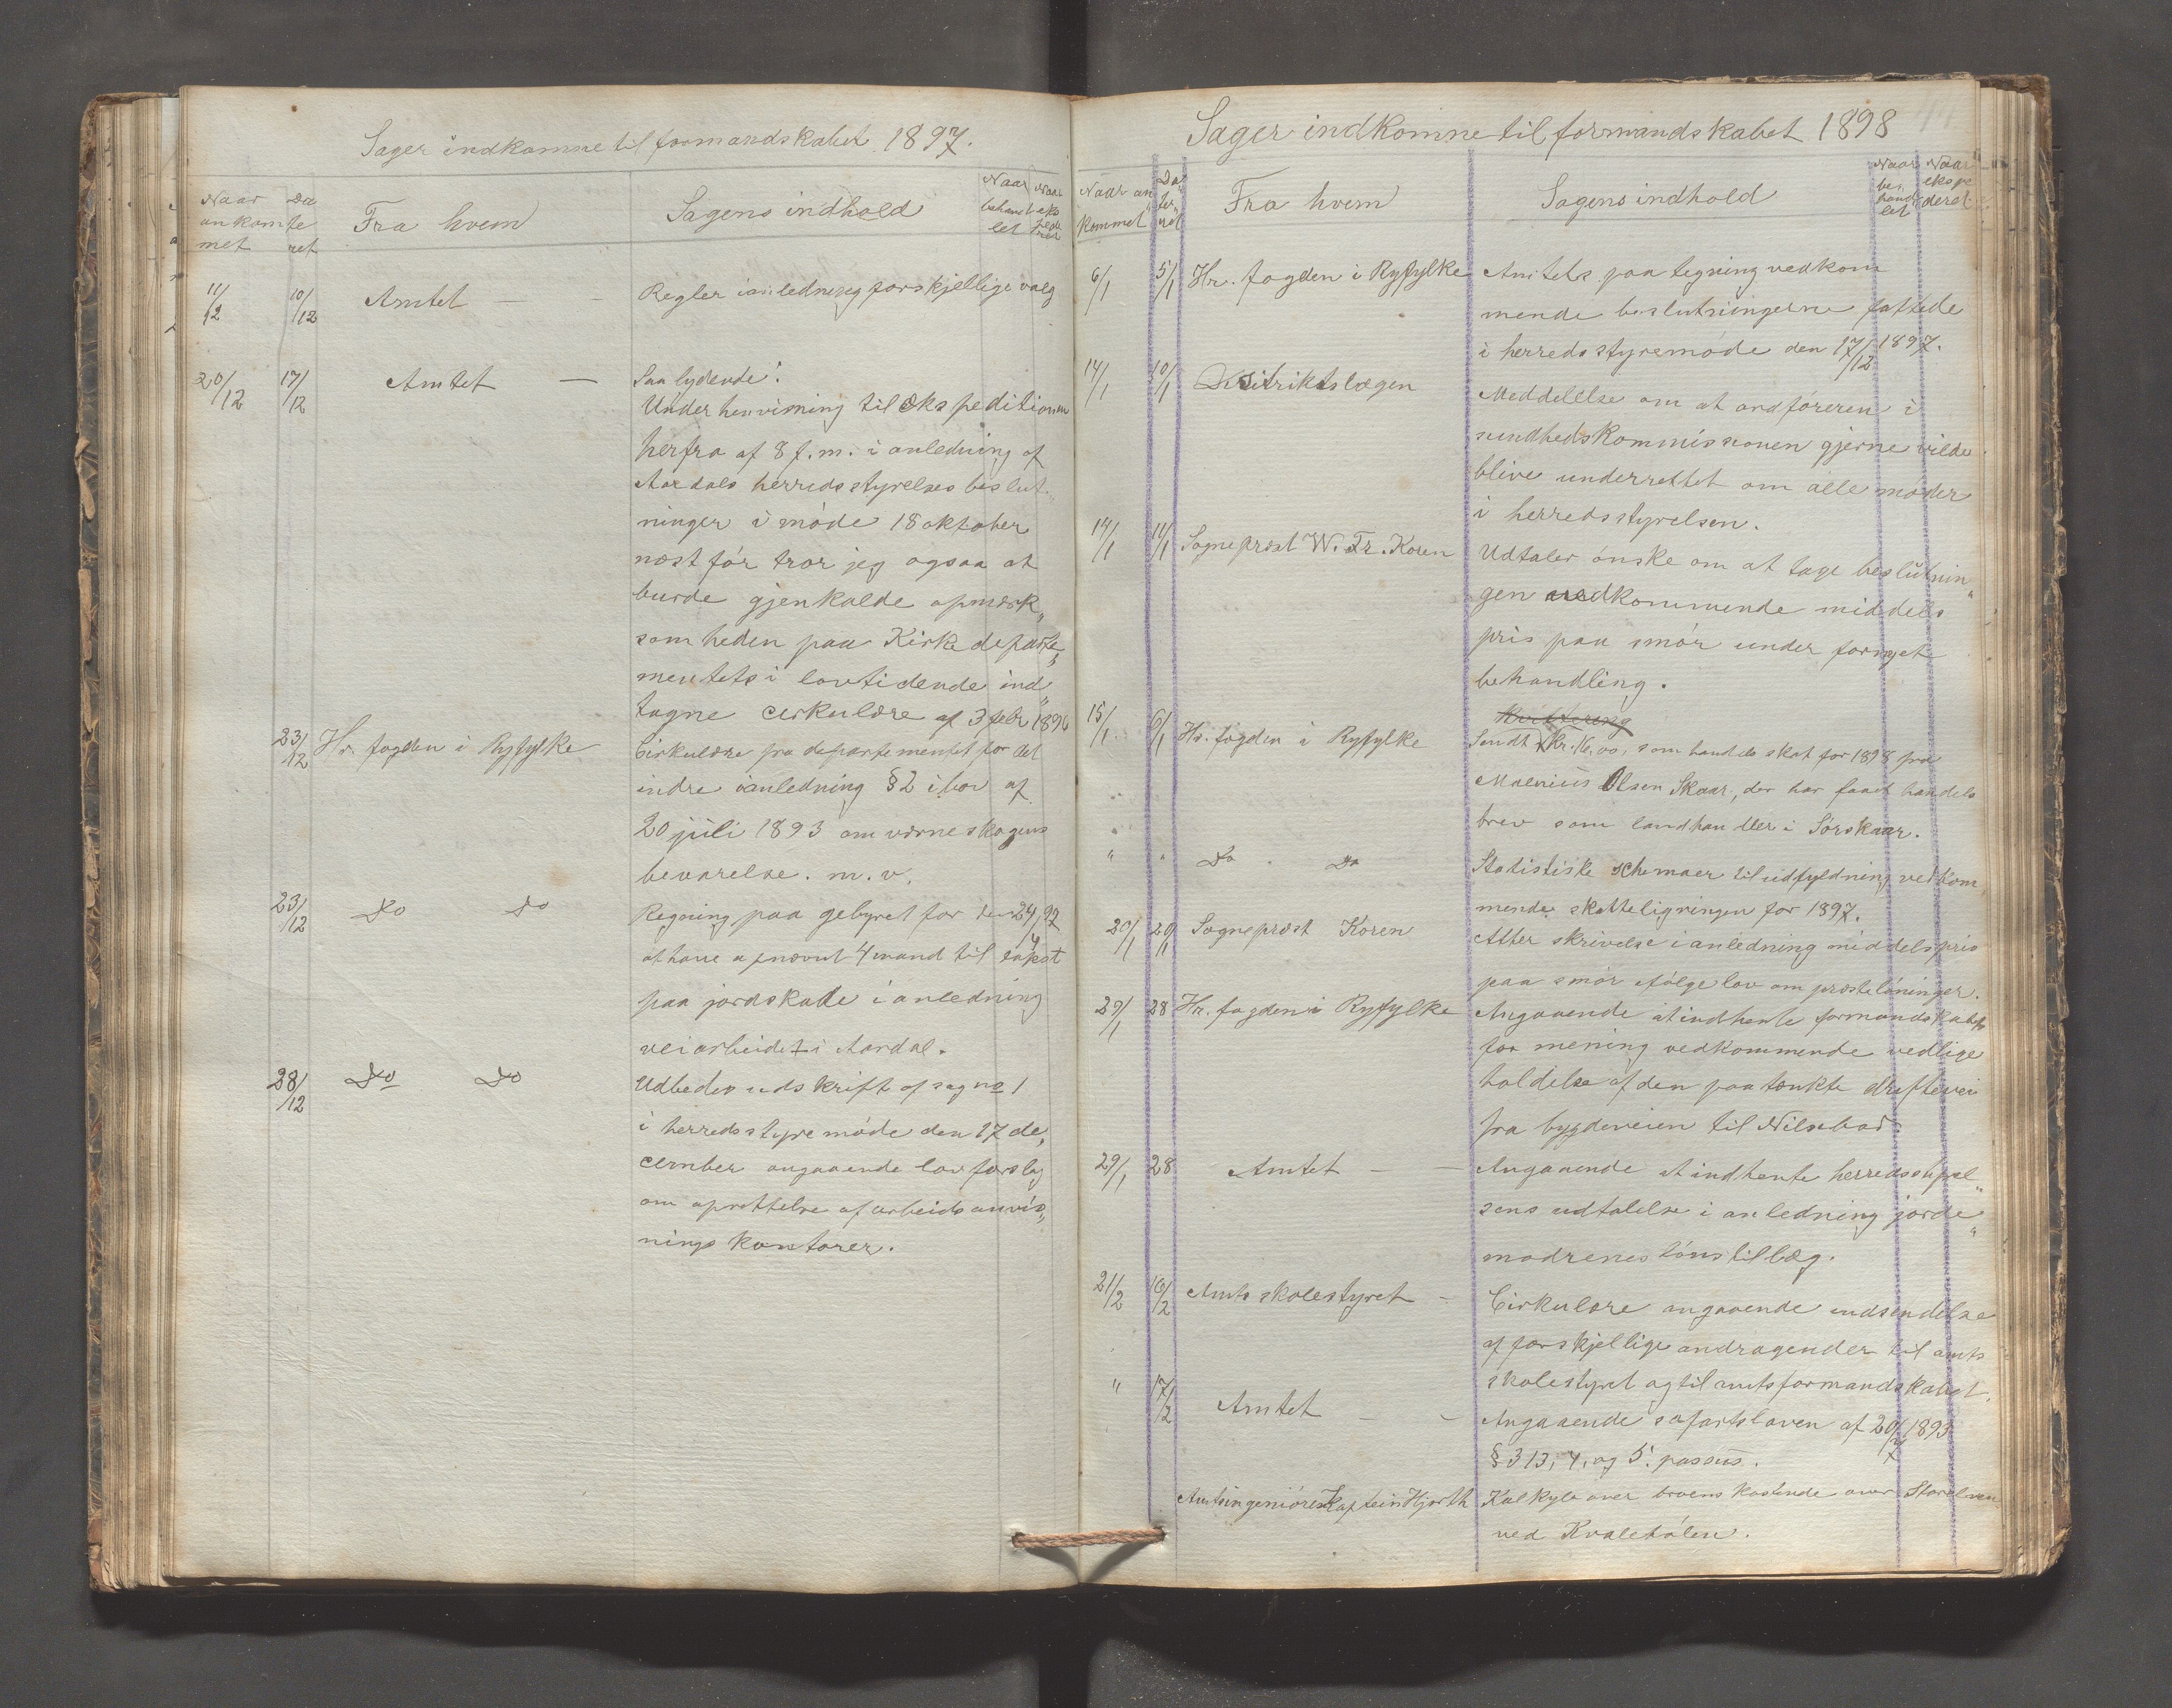 Sager indkomne til formandskabet 1897.
Naar ankommet
Dateret
Fra hvem
Sagens indhold
Naar behandlet
Naar
11/12 10/12 Amtet — — Regler i anledning forskjellige valg
20/12 17/12 Amtet — Saa lydende:
Under henvisning til ekspeditionen
herfra af 8 f. m. i anledning af
Aardals herredsstyrelses beslut„
ninger i møde 18 oktober
næst før tror jeg ogsaa at
burde gjenkalde opmærk„
somheden paa Kirkedeparte„
mentets i lovtidende ind„
tagne cirkulære af 3 febr 1896
23/12 Hr. fogden i Ryfylke Cirkulære fra departementet for det
indre i anledning § 2 i lov af
20 juli 1893 om værneskogens
bevarelse. m. v.
23/12 Do Do Regning paa gebyret for
at have opnævnt 4 mand til takst
paa jordskade i anledning
veiarbeidet i Aardal.
28/12 Do Do Udbedes udskrift af sag no 1
i herredsstyremøde den 17 de„
cember angaaende lovforslag
om oprettelse af arbeidsanvis„
nings kontorer.
Sager indkomne til formandskabet 1898
Naar ankommet
Dateret
Fra hvem
Sagens indhold
Naar behandlet
Naar ekspederet
6/1 5/1 Hr. fogden i Ryfylke Amtets paategning vedkom
mende beslutningerne fattede
i herredsstyremøde den 17/12 1897.
14/1 10/1 Distriktslægen Meddelelse om at ordføreren i
sundhedskommissionen gjerne vilde
blive underrettet om alle møder
i herredsstyrelsen.
14/1 11/1 Sogneprest W. Fr. Koren Udtaler ønske om at tage beslutnin„
gen vedkommende middels
pris paa smør under fornyet
behandling.
15/1 6/1 Hr. fogden i Ryfylke Kvittering
Sendt Kr. 16,00, som handels skat for 1898 fra
Olsen Skaar, der har faaet handels
brev som landhandler i Sørskaar.
" " Do Do Statistiske schemaer til udfyldning vedkom
mende skatteligningen for 1897.
20/1 20/1 Sogneprest Koren Atter skrivelse i anledning middelspris
paa smør ifølge lov om præsteløninger.
29/1 28 Hr. fogden i Ryfylke Angaaende at indhente formandskabets
for mening vedkommende vedlige
holdelse af den paatænkte driftevei
fra bygdeveien til Nilsebu
29/1 28 Amtet — — Angaaende at indhente herredsstyrel„
sens udtalelse i anledning jorde„
modrenes lønstillæg.
21/2 16/2 Amts skolestyret — Cirkulære angaaende indsendelse
af forskjellige andragender til amts
skolestyret og til amtsformandskabet.
" 17/2 Amtet — — Angaaende søfartsloven af 20/7 1893
§ 313, 4, og 5. passus.
Amtsingeniøren Kaptein Hjorth Kalkyle over broens kostende over Storelven
ved Kvalehølen.